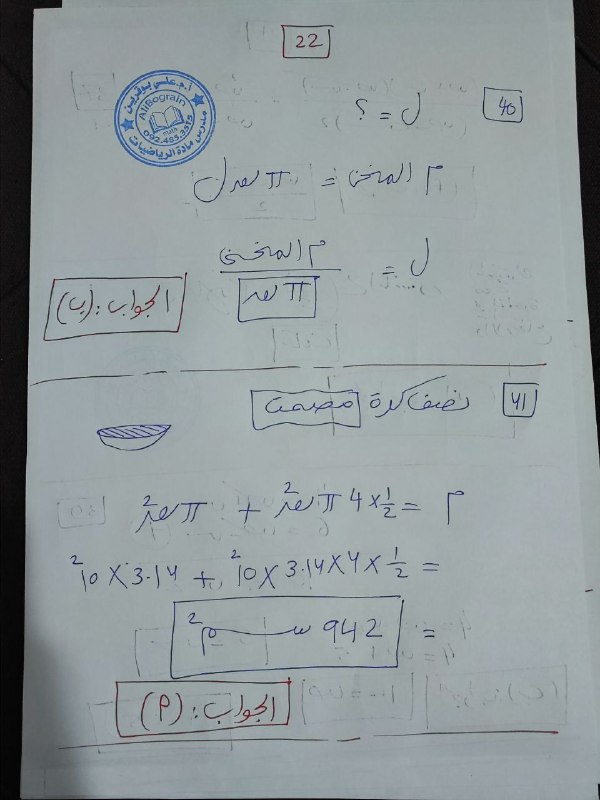 22
أ.م.علي بوقرين
AliBograin
math
092.485.3515
مدرس مادة الرياضيات
40 ل = ؟
م المنحنى = π نق ل
ل = م المنحنى / π نق
الجواب: (ب)
41 نصف كرة مصمت
م = 1/2 × 4 π نق² + π نق²
= 1/2 × 4 × 3.14 × 10² + 3.14 × 10²
= 942 سم²
الجواب: (P)